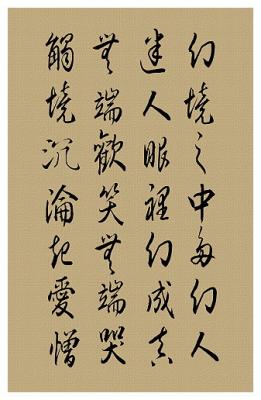 幻境之中每幻人
迷人眼裡幻成真
無端歡笑無端哭
觸境沉淪起愛憎